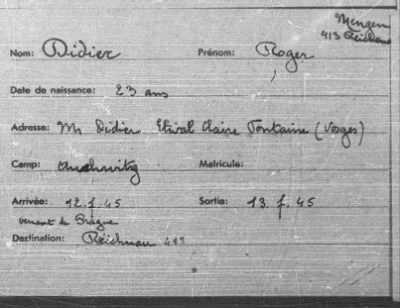 Mengen
413 Reichenau
Nom: Didier Prénom: Roger
Date de naissance: 23 ans
Adresse: Mr Didier Etival Claire Fontaine (Vosges)
Camp: Auschwitz Matricule:
Arrivée: 12.f.45 Sortie: 13.f.45
venant de Prague
Destination: Reichnau 413